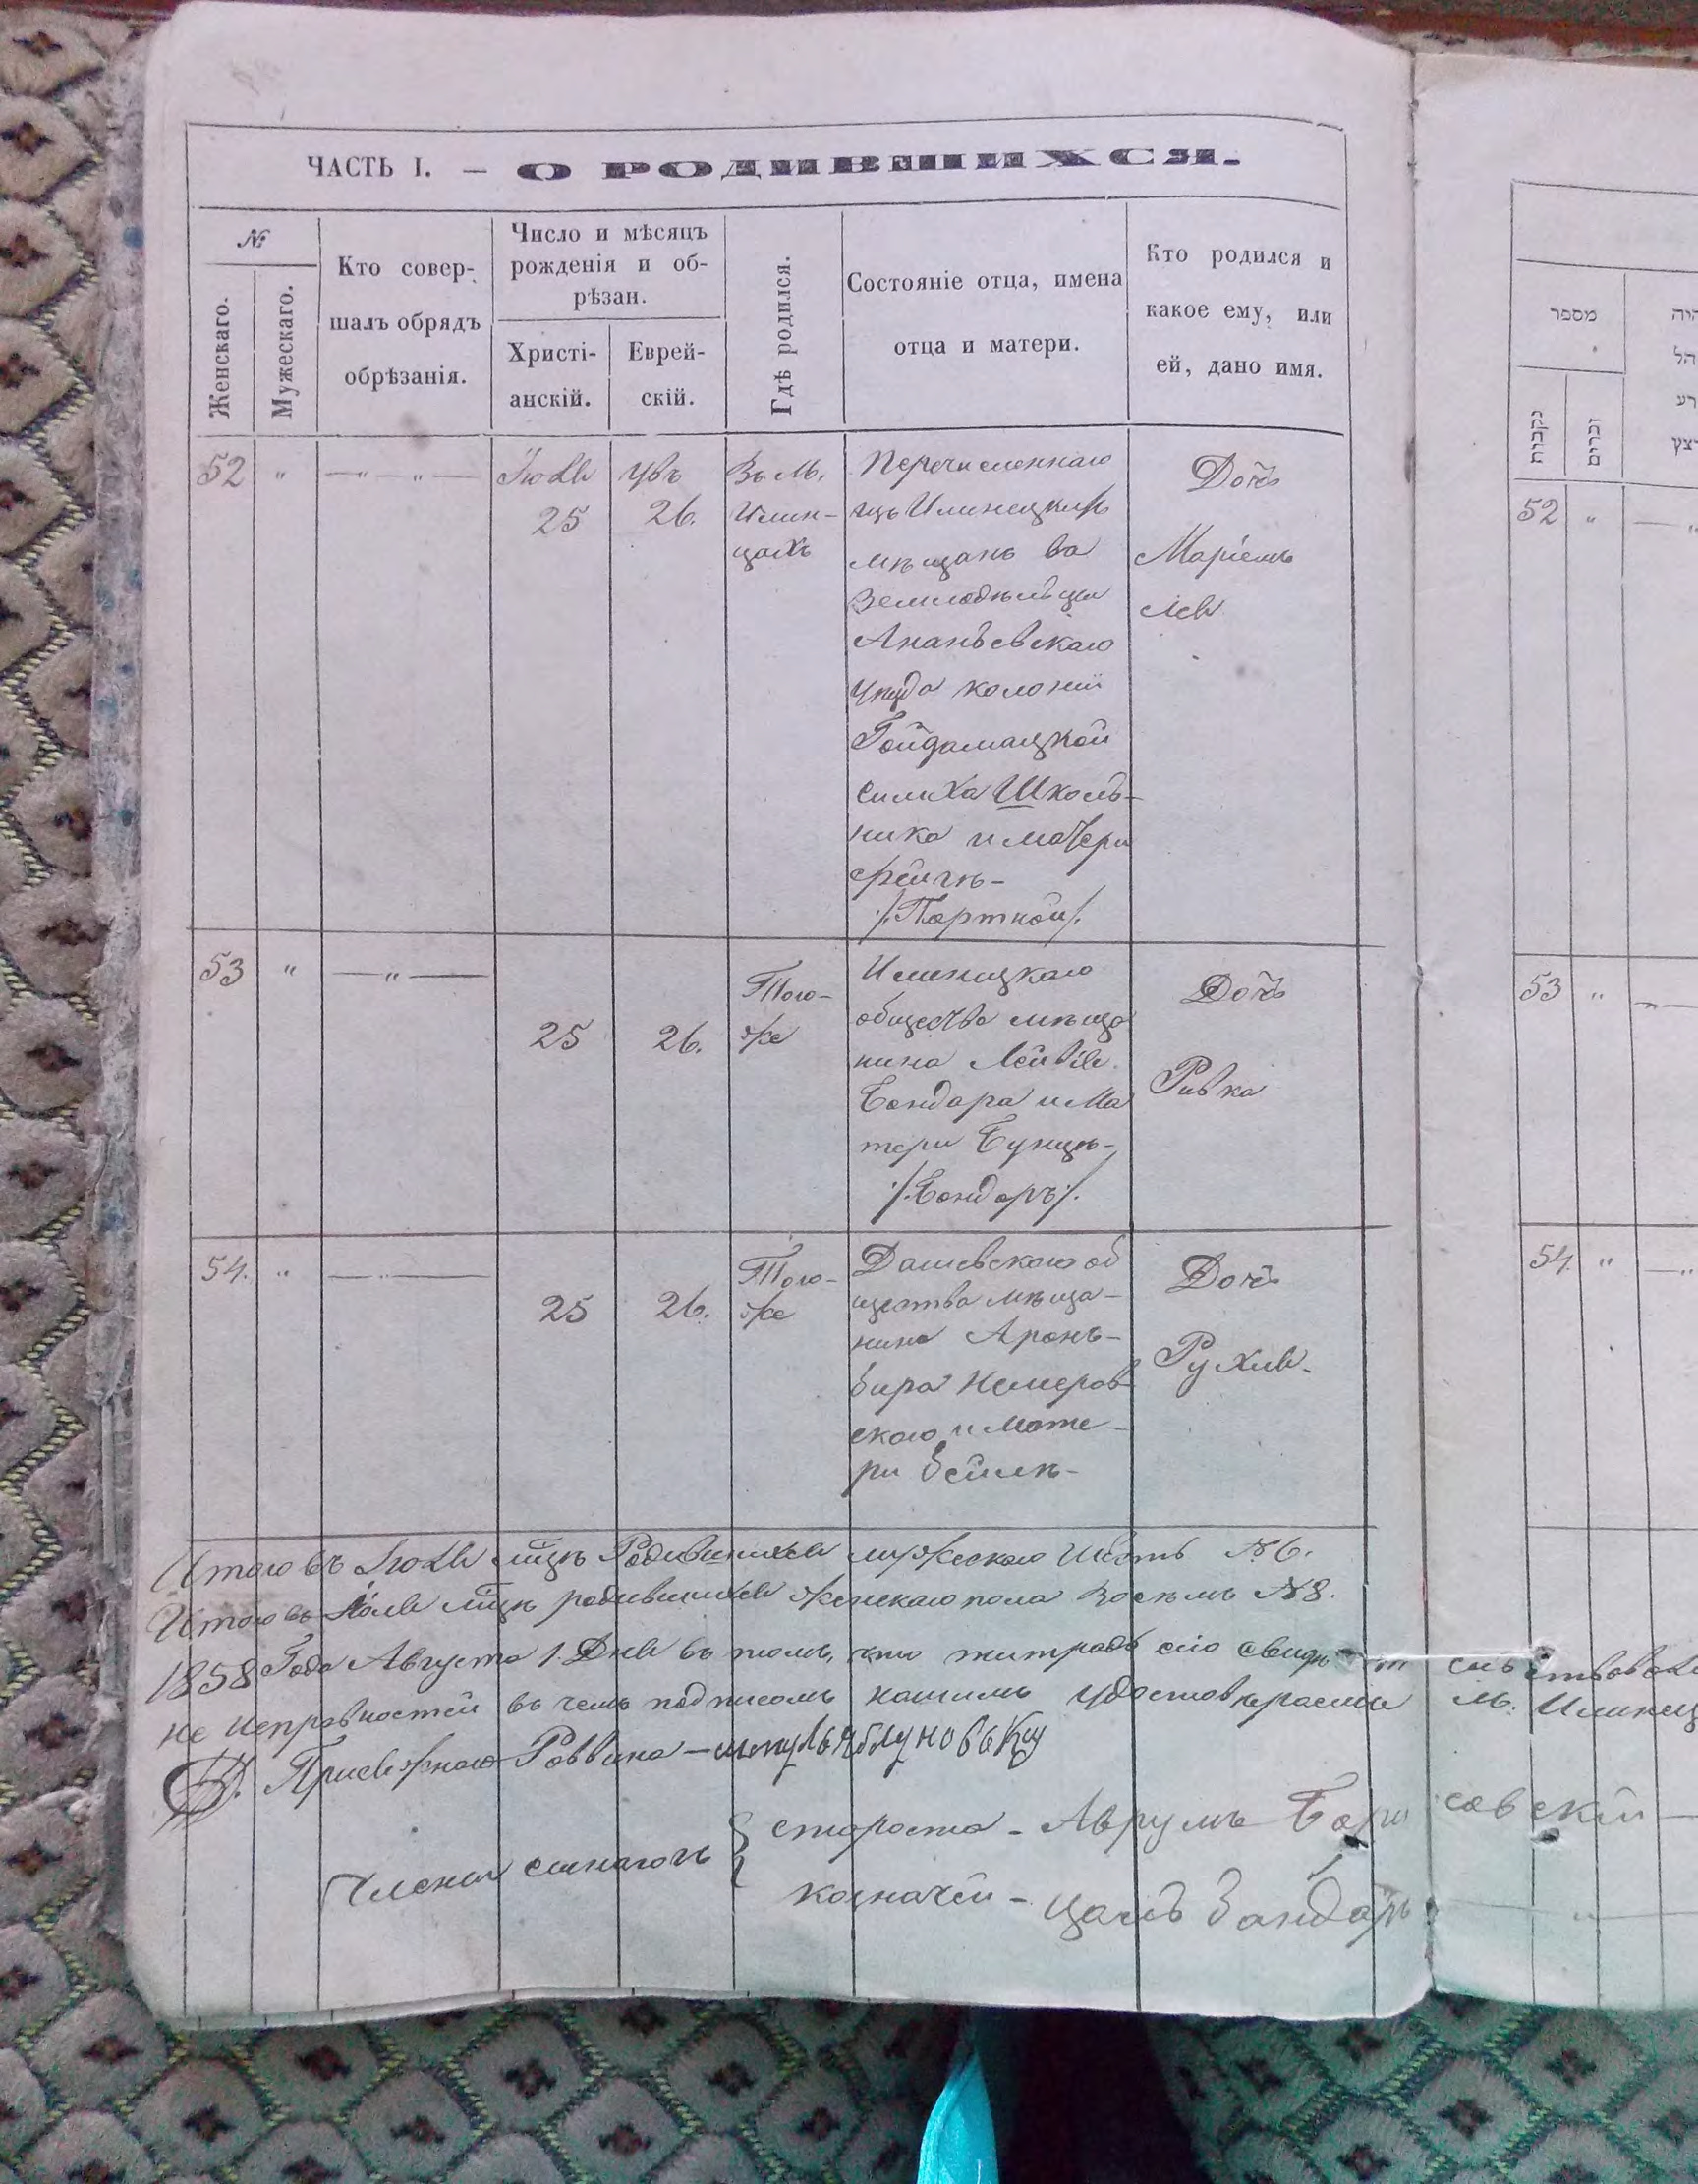 ЧАСТЬ I. — О РОДИВШИХСЯ.
№
Женскаго.
Мужескаго.
Кто совер-
шалъ обрядъ
обрѣзанія.
Число и мѣсяцъ
рожденія и об-
рѣзан.
Христі-
анскій.
Еврей-
скій.
Гдѣ родился.
Состояніе отца, имена
отца и матери.
Кто родился и
какое ему, или
ей, дано имя.
52 " —"—"—
Іюля
25
26.
Въ М.
Илин-
цахъ
Перечисленнаго
изъ Илинецкихъ
мѣщанъ въ
Земледѣльцы
Ананьевскаго
уѣзда колоніи
Гайдамацкой
Школь-
ника и матери
/.Портной/.
Дочь
Маріемъ
53 " —"—
25
26.
Того-
же
Илинецкаго
общества мѣща
нина
Бондара и ма
тери
/.Бондаръ/.
Дочь
Ривка
54. " —"—
25
26.
Того-
же
Дашевскаго об
щества мѣща-
нина Аронъ-
бира Немеров-
скаго и мате-
ри Бейлѣ-
Дочь
Рухля.
Итого въ Іюля мцѣ Родившихся мужескаго Шесть №6.
Итого въ Іюля мцѣ родившихся женскаго пола Восемь №8.
1858 Года Августа 1. Дня въ томъ, что тетрадь сію
не исправностей въ чемъ подписомъ нашимъ удостовѣряемъ М. Илинец
Присяжнаго Раввина —
Члены синагоги
староста - Аврумъ
казначей -
מספר
נקבות
זכרים
52 "
53 "
54. "